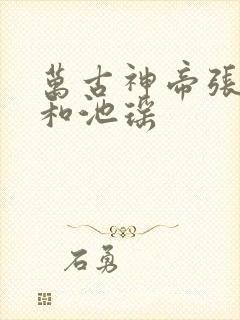 萬古神帝張
和池瑤
石勇